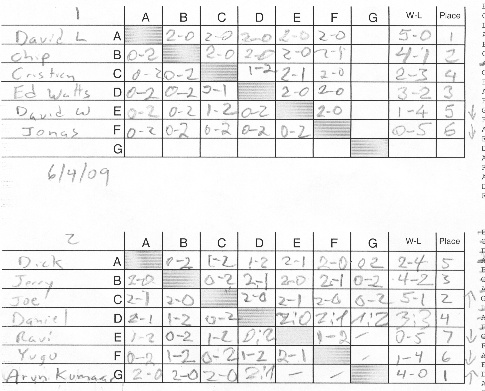 1 A B C D E F G W-L Place
David L A 2-0 2-0 2-0 2-0 2-0 5-0 1
Chip B 0-2 2-0 2-0 2-0 2-1 4-1 2
Cristian C 0-2 0-2 1-2 2-1 2-0 2-3 4
Ed Watts D 0-2 0-2 2-1 2-0 2-0 3-2 3
David W E 0-2 0-2 1-2 0-2 2-0 1-4 5 ↓
Jonas F 0-2 0-2 0-2 0-2 0-2 0-5 6 ↓
G
6/4/09
2 A B C D E F G W-L Place
Dick A 0-2 1-2 1-2 2-1 2-0 0-2 2-4 5
Jerry B 2-0 0-2 2-1 2-0 2-1 0-2 4-2 3
Joe C 2-1 2-0 2-0 2-1 2-0 0-2 5-1 2 ↑
Daniel D 2-1 1-2 0-2 2:0 2:1 1:2 3:3 4
Ravi E 1-2 0-2 1-2 0:2 1-2 - 0-5 7 ↓
Yugo F 0-2 1-2 0-2 1-2 2-1 - 1-4 6 ↓
Arun Kumar G 2-0 2-0 2-0 2:1 - - 4-0 1 ↑